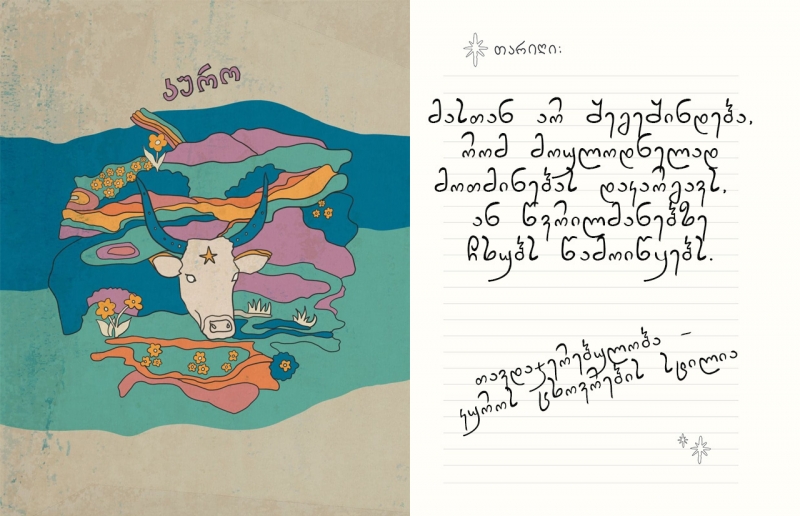 კურო
თარიღი:
მასთან არ შეგეშინდება,
რომ მოულოდნელად
მოთმინებას დაკარგავს,
ან წვრილმანებზე
ჩხუბს წამოიწყებს.
თავდაჯერებულობა –
კუროს ცხოვრების სტილია